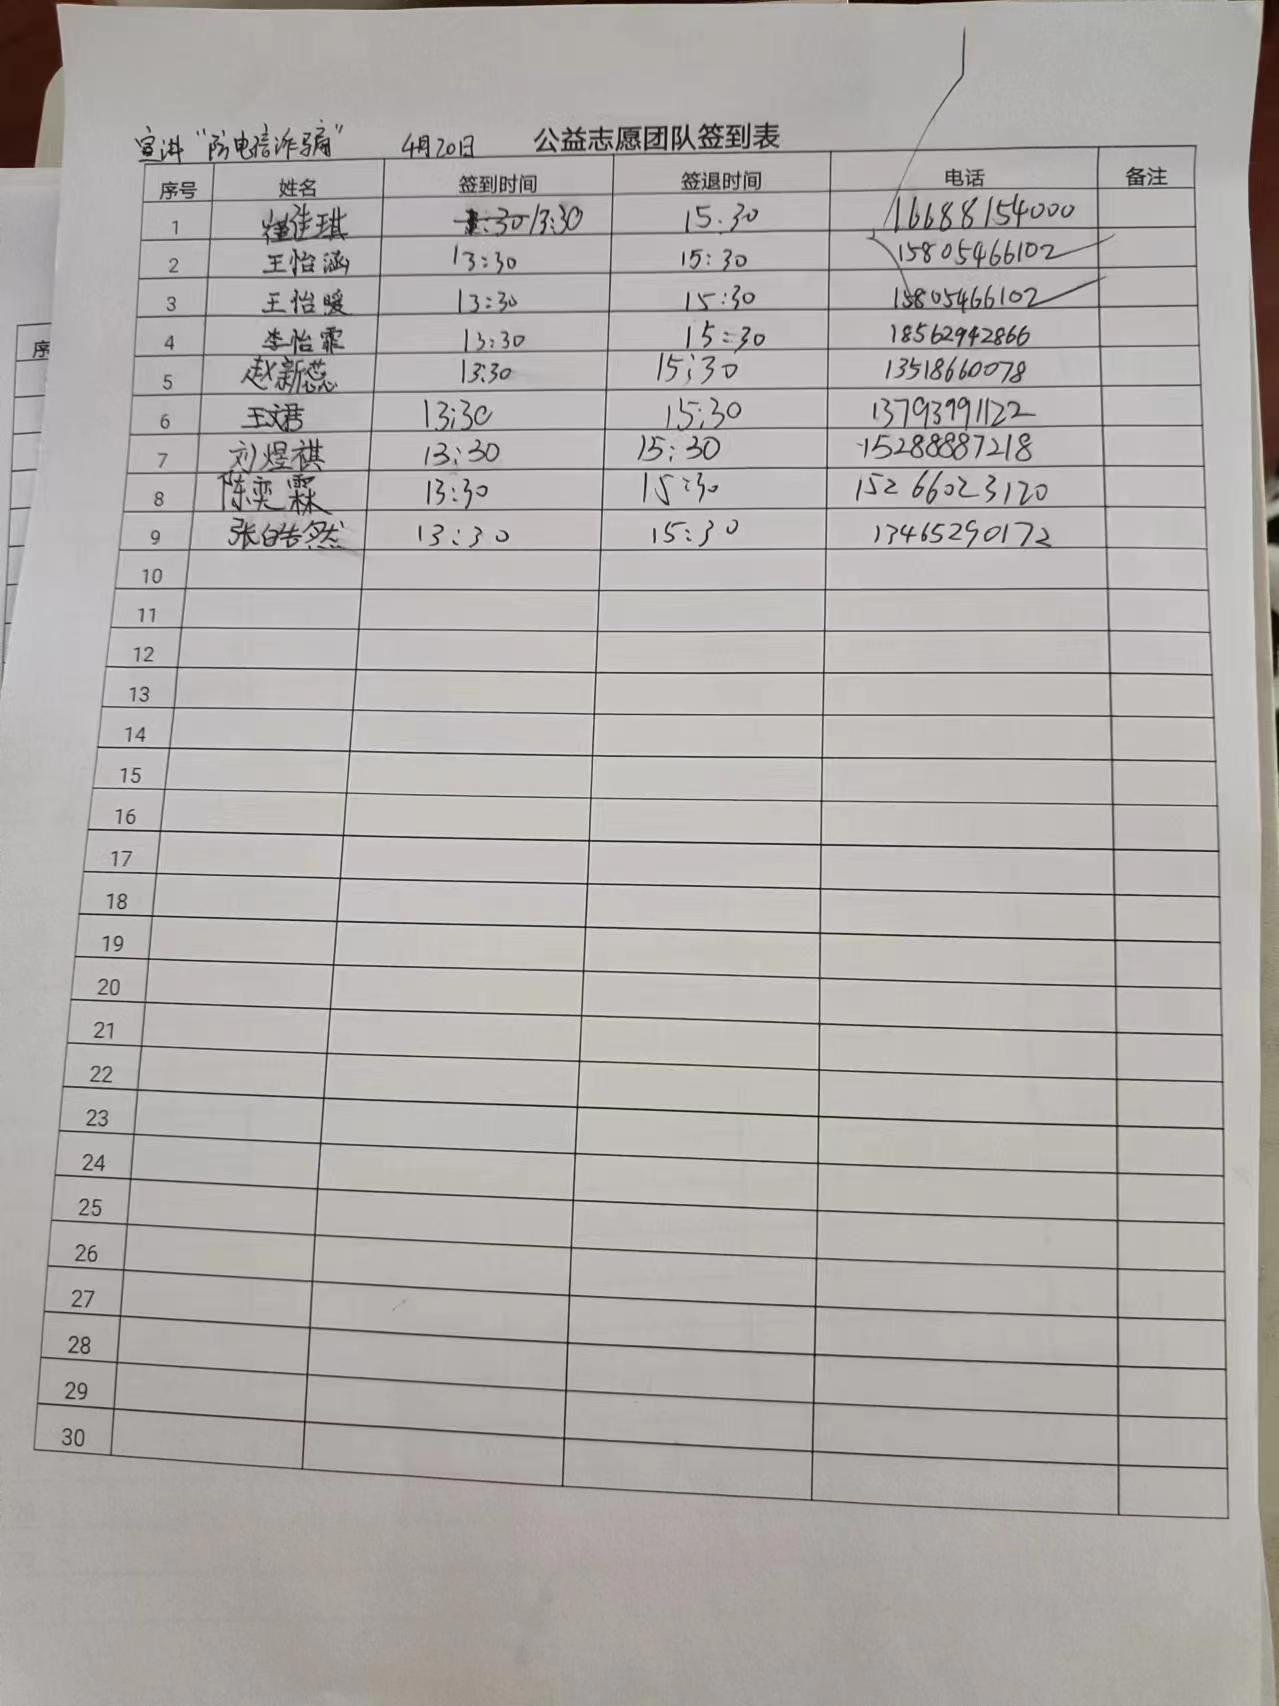 宣讲“防电信诈骗” 4月20日 公益志愿团队签到表
序号 姓名 签到时间 签退时间 电话 备注
1 崔佳琪 13:30 15:30 16688154000
2 王怡涵 13:30 15:30 15805466102
3 王怡暖 13:30 15:30 15805466102
4 李怡霏 13:30 15:30 18562942866
5 赵新蕊 13:30 15:30 13518660078
6 王文君 13:30 15:30 13793991122
7 刘煜祺 13:30 15:30 15288887218
8 陈奕霖 13:30 15:30 15266023120
9 张皓然 13:30 15:30 13465290172
10
11
12
13
14
15
16
17
18
19
20
21
22
23
24
25
26
27
28
29
30
序